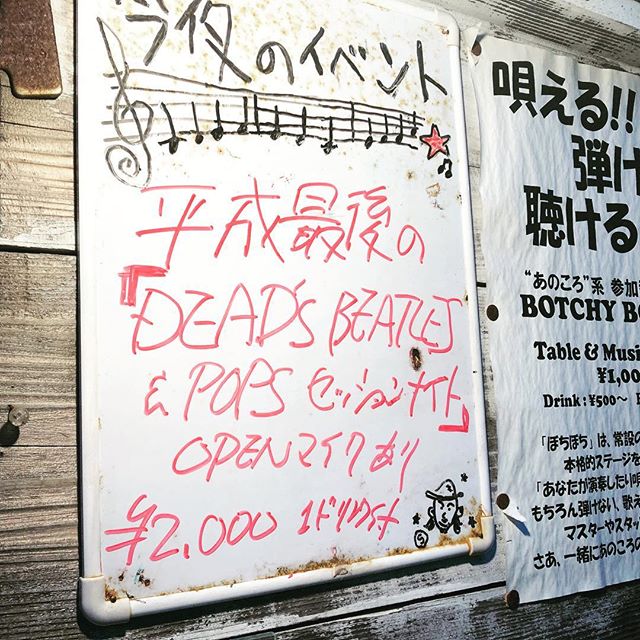 今夜のイベント
平成最後の
「DEAD'S BEATLES
& POPS セッションナイト」
OPENマイクあり
¥2,000 1ドリンク付
唄える!!
弾け
聴ける
"あのころ"系 参加
BOTCHY BO
Table & Music
¥1,00
Drink : ¥500〜
「ぼちぼち」は、常設の
本格的ステージを
「あなたが演奏したり唄
もちろん弾けない、歌え
マスターやスタッ
さあ、一緒にあのころの